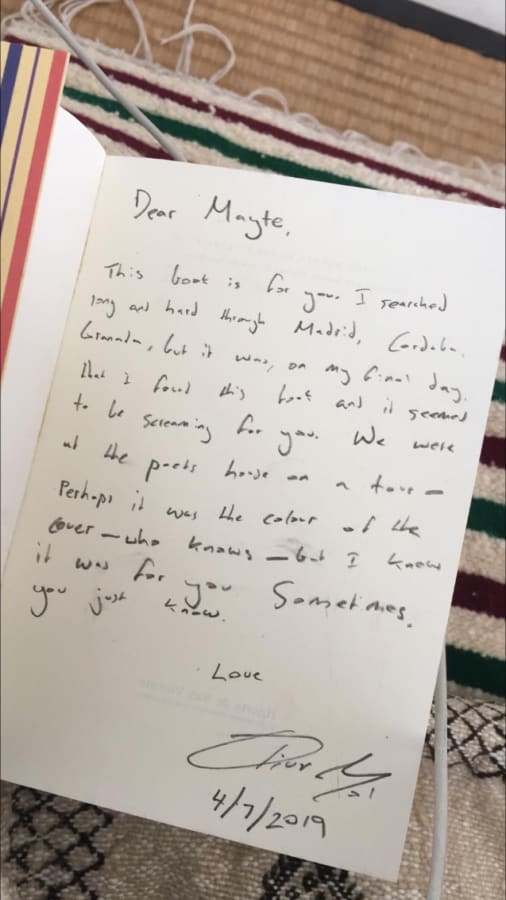 Dear Mayte,
This book is for you. I searched
long and hard through Madrid, Cordoba,
Granada, but it was, on my final day,
that I found this book and it seemed
to be screaming for you. We were
at the poets house on a tour –
Perhaps it was the colour of the
cover – who knows – but I know
it was for you Sometimes,
you just know.
Love
4/7/2019